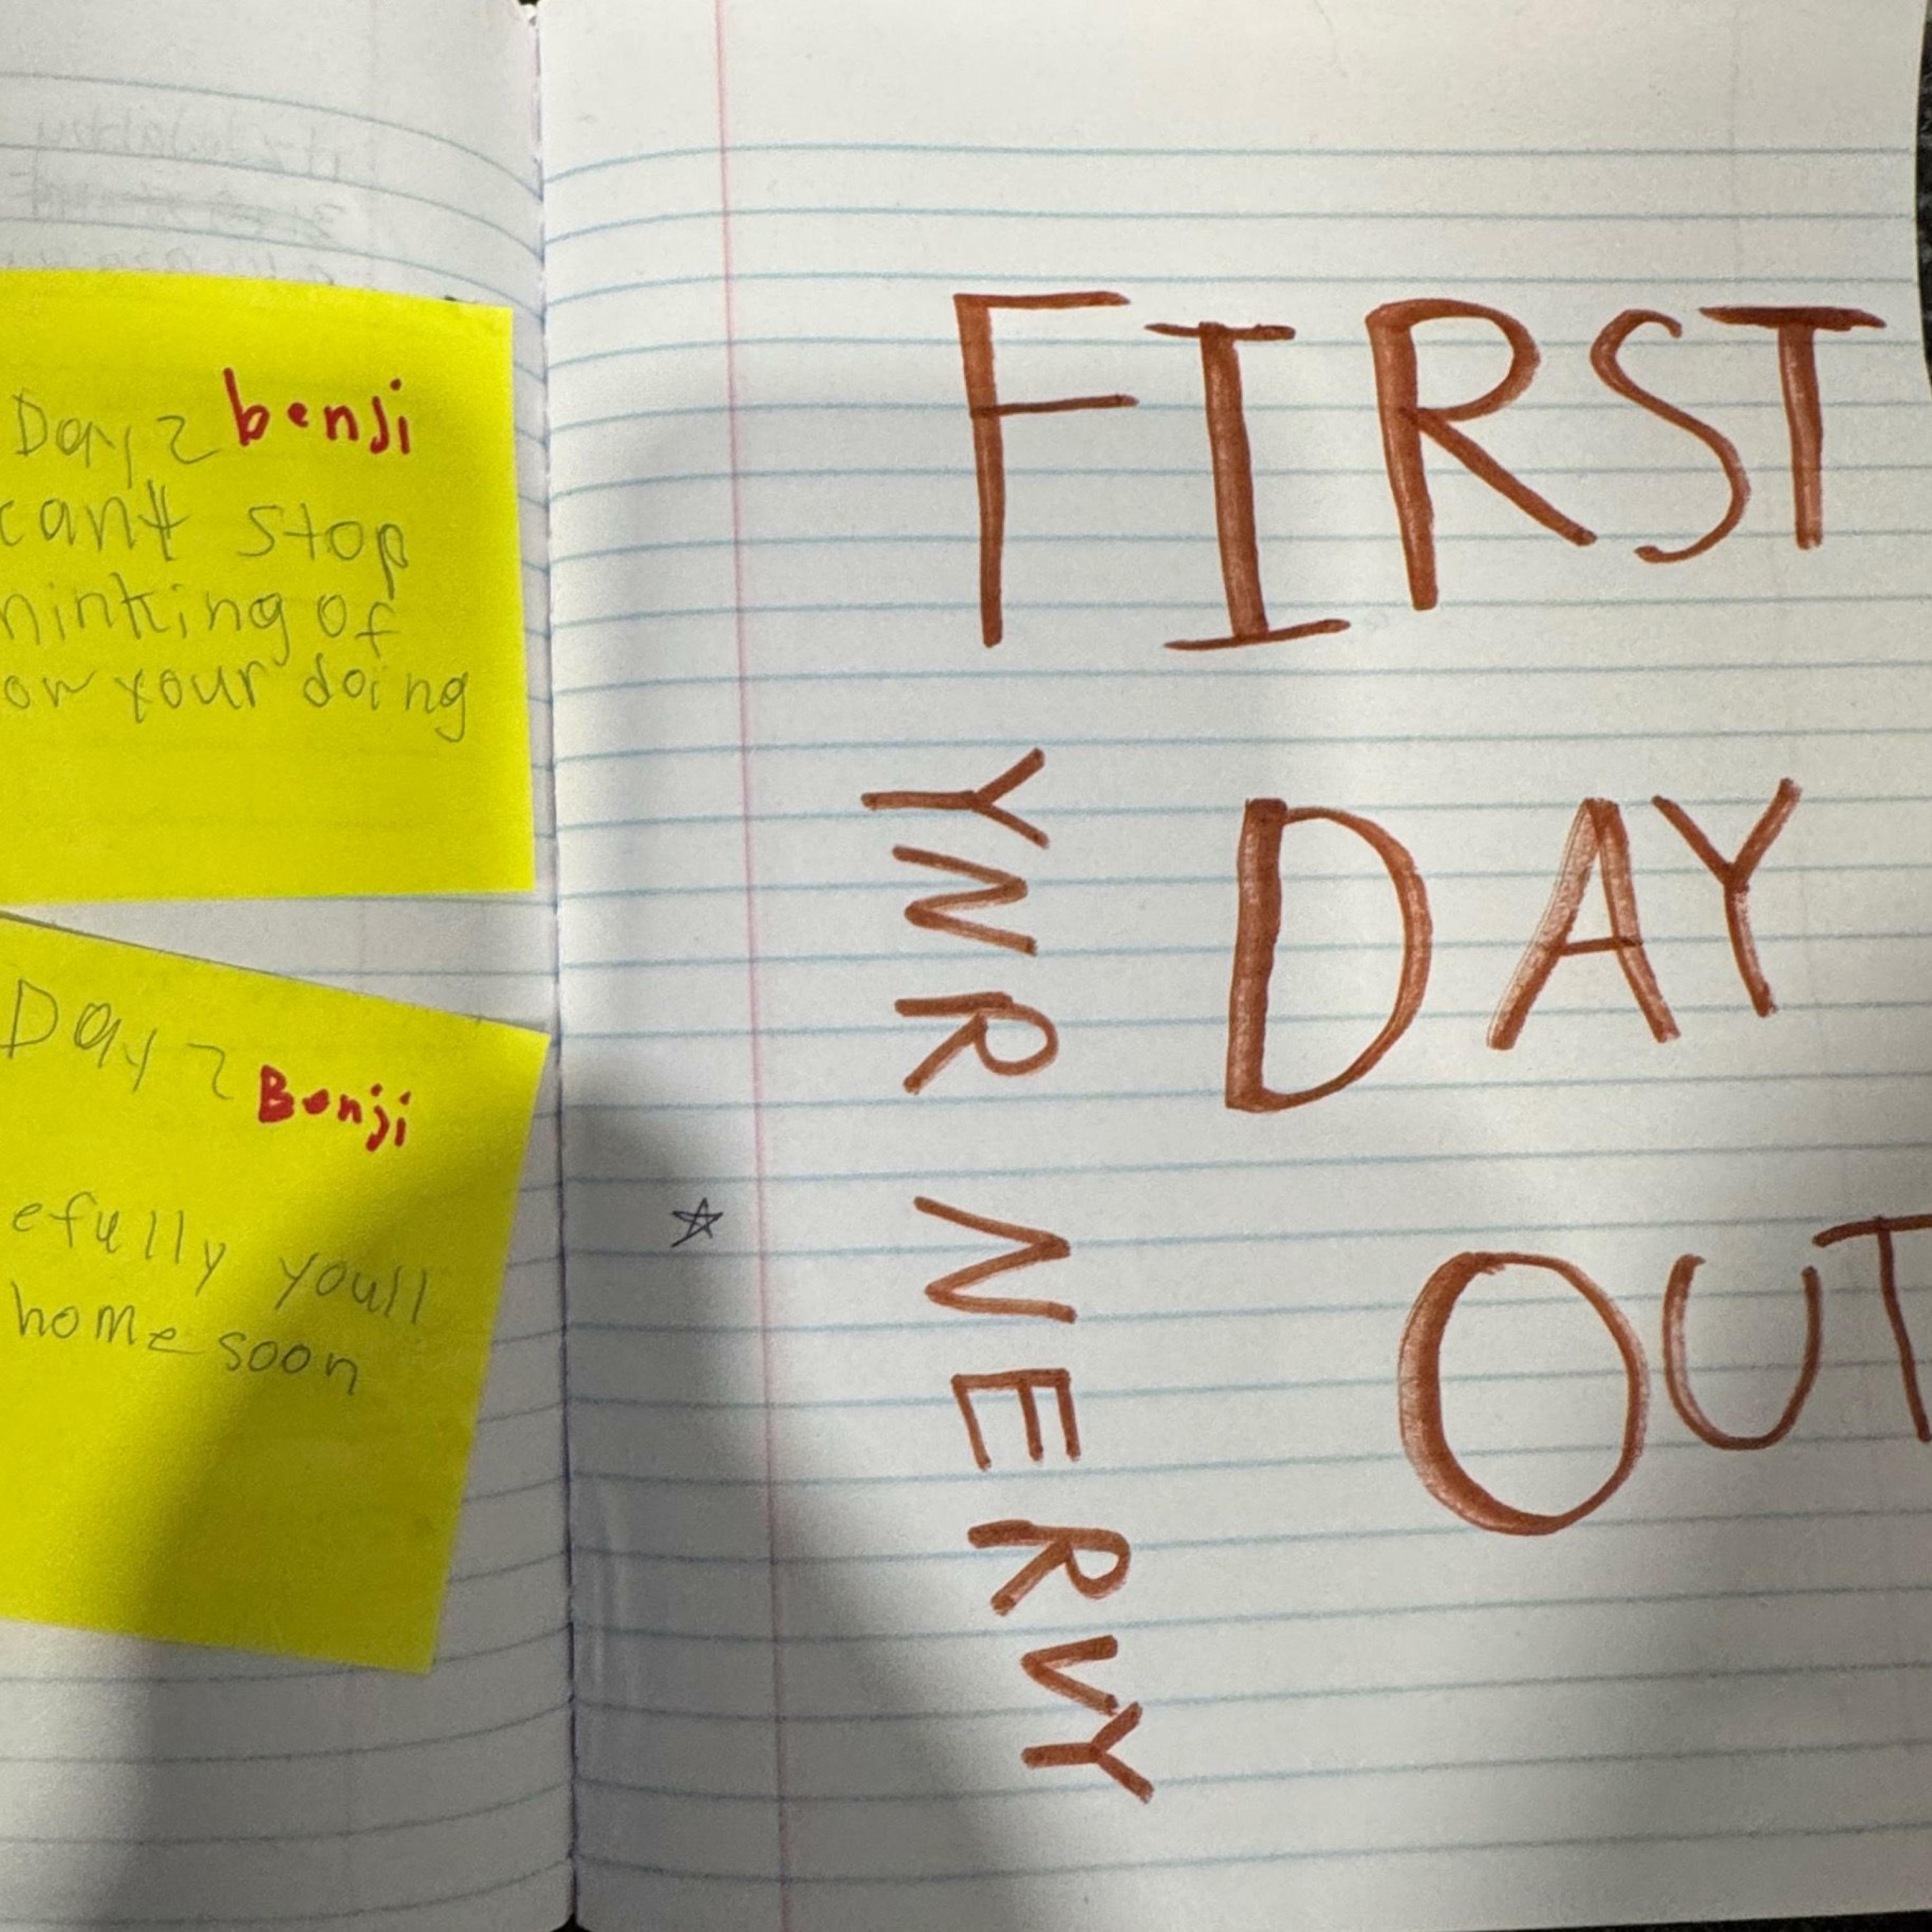 Day 2 benji
cant stop
hinking of
ow your doing
Day 2 Benji
efully youll
home soon
FIRST
DAY
OUT
YNR NERVY